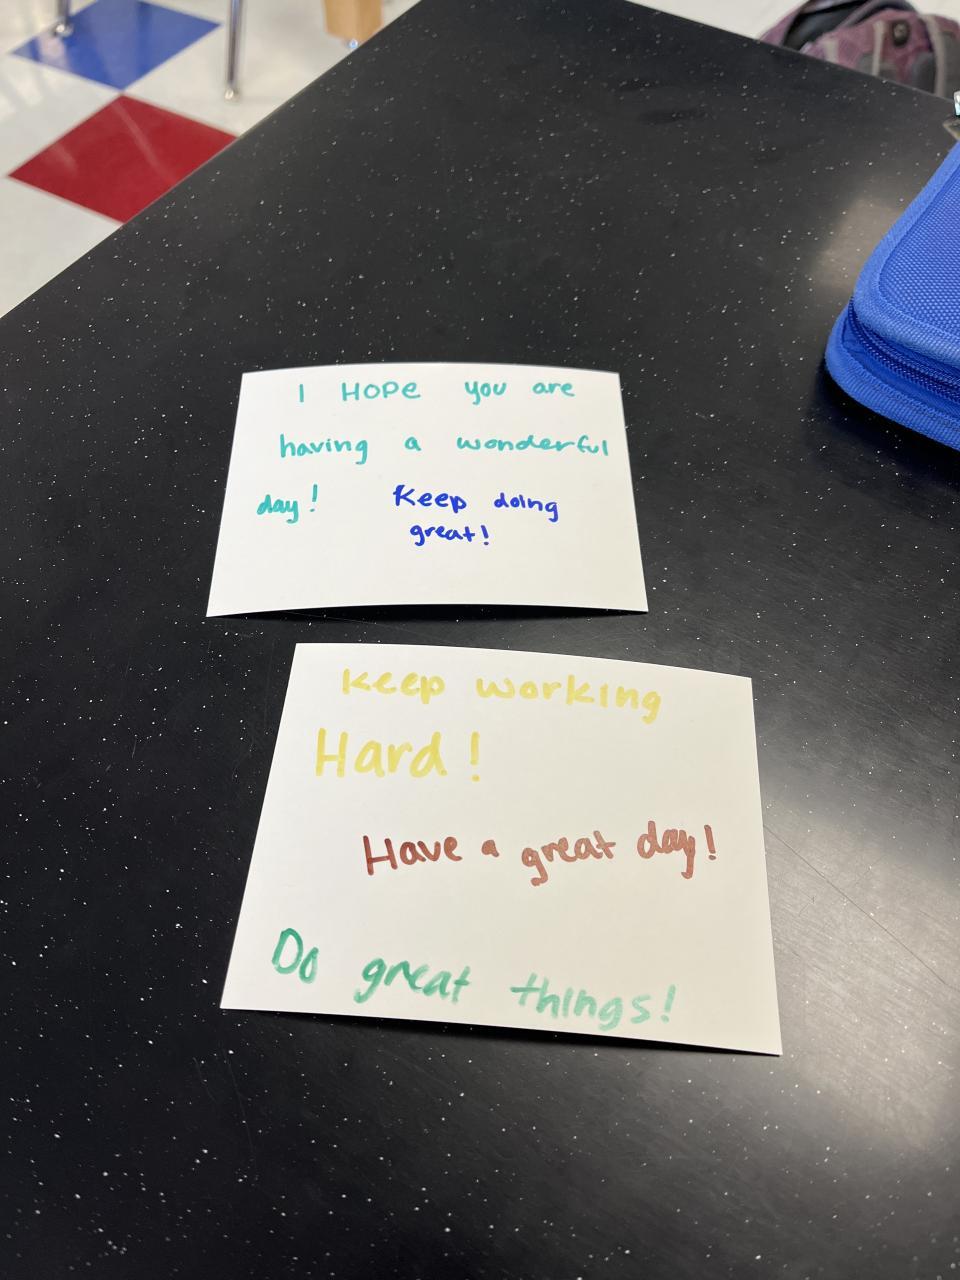 I HOPE you are
having a wonderful
day! Keep doing
great!
Keep working
Hard!
Have a great day!
Do great things!